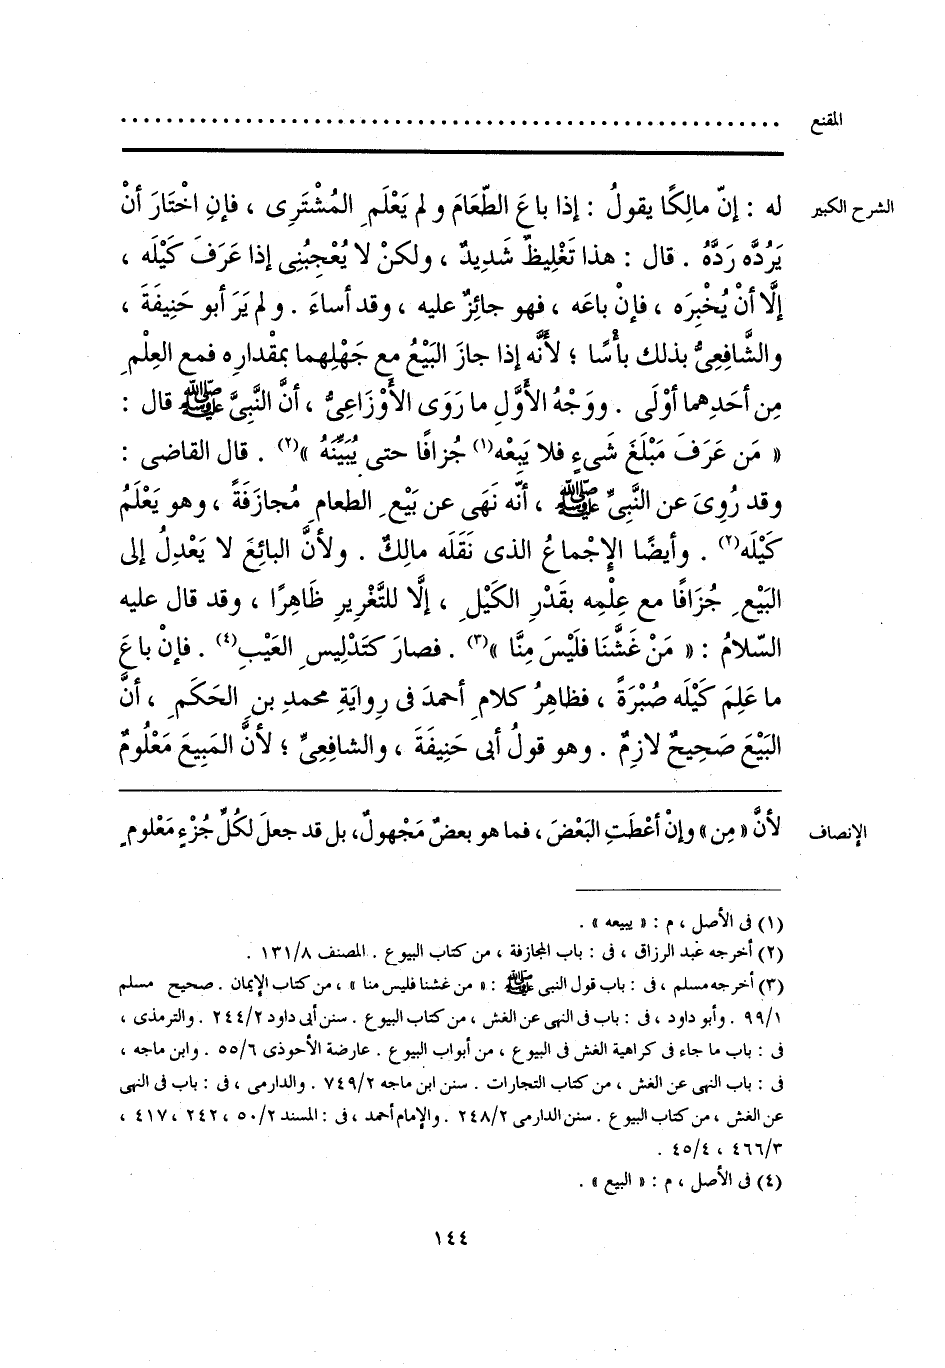 المقنع ............................................................
الشرح الكبير له : إنّ مالِكًا يقولُ : إذا باعَ الطّعَامَ و لم يَعْلَمِ المُشْتَرِى ، فإنِ اخْتَارَ أنْ
يَرُدَّه رَدَّهُ . قال : هذا تَغْلِيظٌ شَدِيدٌ ، ولكنْ لا يُعْجِبُنِى إذا عَرَفَ كَيْلَه ،
إلَّا أنْ يُخْبِرَه ، فإنْ باعَه ، فهو جائِزٌ عليه ، وقد أساءَ . و لم يَرَ أبو حَنِيفَةَ ،
والشَّافِعِىُّ بذلك بأْسًا ؛ لأنَّه إذا جازَ البَيْعُ مع جَهْلِهما بمقْدارِه فمع العِلْمِ
مِن أحَدِهما أوْلَى . ووَجْهُ الأوَّلِ ما رَوَى الأوْزَاعِىُّ ، أنَّ النَّبِىَّ ﷺ قال :
« مَن عَرَفَ مَبْلَغَ شَىءٍ فلا يَبِعْه(١) جُزافًا حتى يُبَيِّنَهُ »(٢) . قال القاضى :
وقد رُوِىَ عن النَّبِىِّ ﷺ ، أنّه نَهَى عن بَيْعِ الطعامِ مُجازَفَةً ، وهو يَعْلَمُ
كَيْلَه(٢) . وأيضًا الإِجْماعُ الذى نَقَلَه مالِكٌ . ولأنَّ البائِعَ لا يَعْدِلُ إلى
البَيْعِ جُزَافًا مع عِلْمِه بقَدْرِ الكَيْلِ ، إلَّا للتَّغْرِيرِ ظَاهِرًا ، وقد قال عليه
السّلامُ : « مَنْ غَشَّنَا فلَيْسَ مِنَّا »(٣) . فصارَ كتَدْلِيسِ العَيْبِ(٤) . فإنْ باعَ
ما عَلِمَ كَيْلَه صُبْرَةً ، فظاهِرُ كلامِ أحمدَ فى رِوايَةِ محمدِ بنِ الحَكَمِ ، أنَّ
البَيْعَ صَحِيحٌ لازِمٌ . وهو قولُ أبى حَنِيفَةَ ، والشافِعِىِّ ؛ لأنَّ المَبِيعَ مَعْلُومٌ
الإنصاف لأنَّ « مِن » وإنْ أعْطَتِ البَعْضَ ، فما هو بعضٌ مَجْهولٌ، بل قد جعلَ لكُلِّ جُزْءٍ مَعْلومٍ
(١) فى الأصل ، م : « يبيعه » .
(٢) أخرجه عبد الرزاق ، فى : باب المجازفة ، من كتاب البيوع . المصنف ١٣١/٨ .
(٣) أخرجه مسلم ، فى : باب قول النبى ﷺ : « من غشنا فليس منا » ، من كتاب الإيمان . صحيح مسلم
٩٩/١ . وأبو داود ، فى : باب فى النهى عن الغش ، من كتاب البيوع . سنن أبى داود ٢٤٤/٢ . والترمذى ،
فى : باب ما جاء فى كراهية الغش فى البيوع ، من أبواب البيوع . عارضة الأحوذى ٥٥/٦ . وابن ماجه ،
فى : باب النهى عن الغش ، من كتاب التجارات . سنن ابن ماجه ٧٤٩/٢ . والدارمى ، فى : باب فى النهى
عن الغش ، من كتاب البيوع . سنن الدارمى ٢٤٨/٢ . والإمام أحمد ، فى : المسند ٥٠/٢ ، ٢٤٢ ، ٤١٧ ،
٤٦٦/٣ ، ٤٥/٤ .
(٤) فى الأصل ، م : « البيع » .
١٤٤